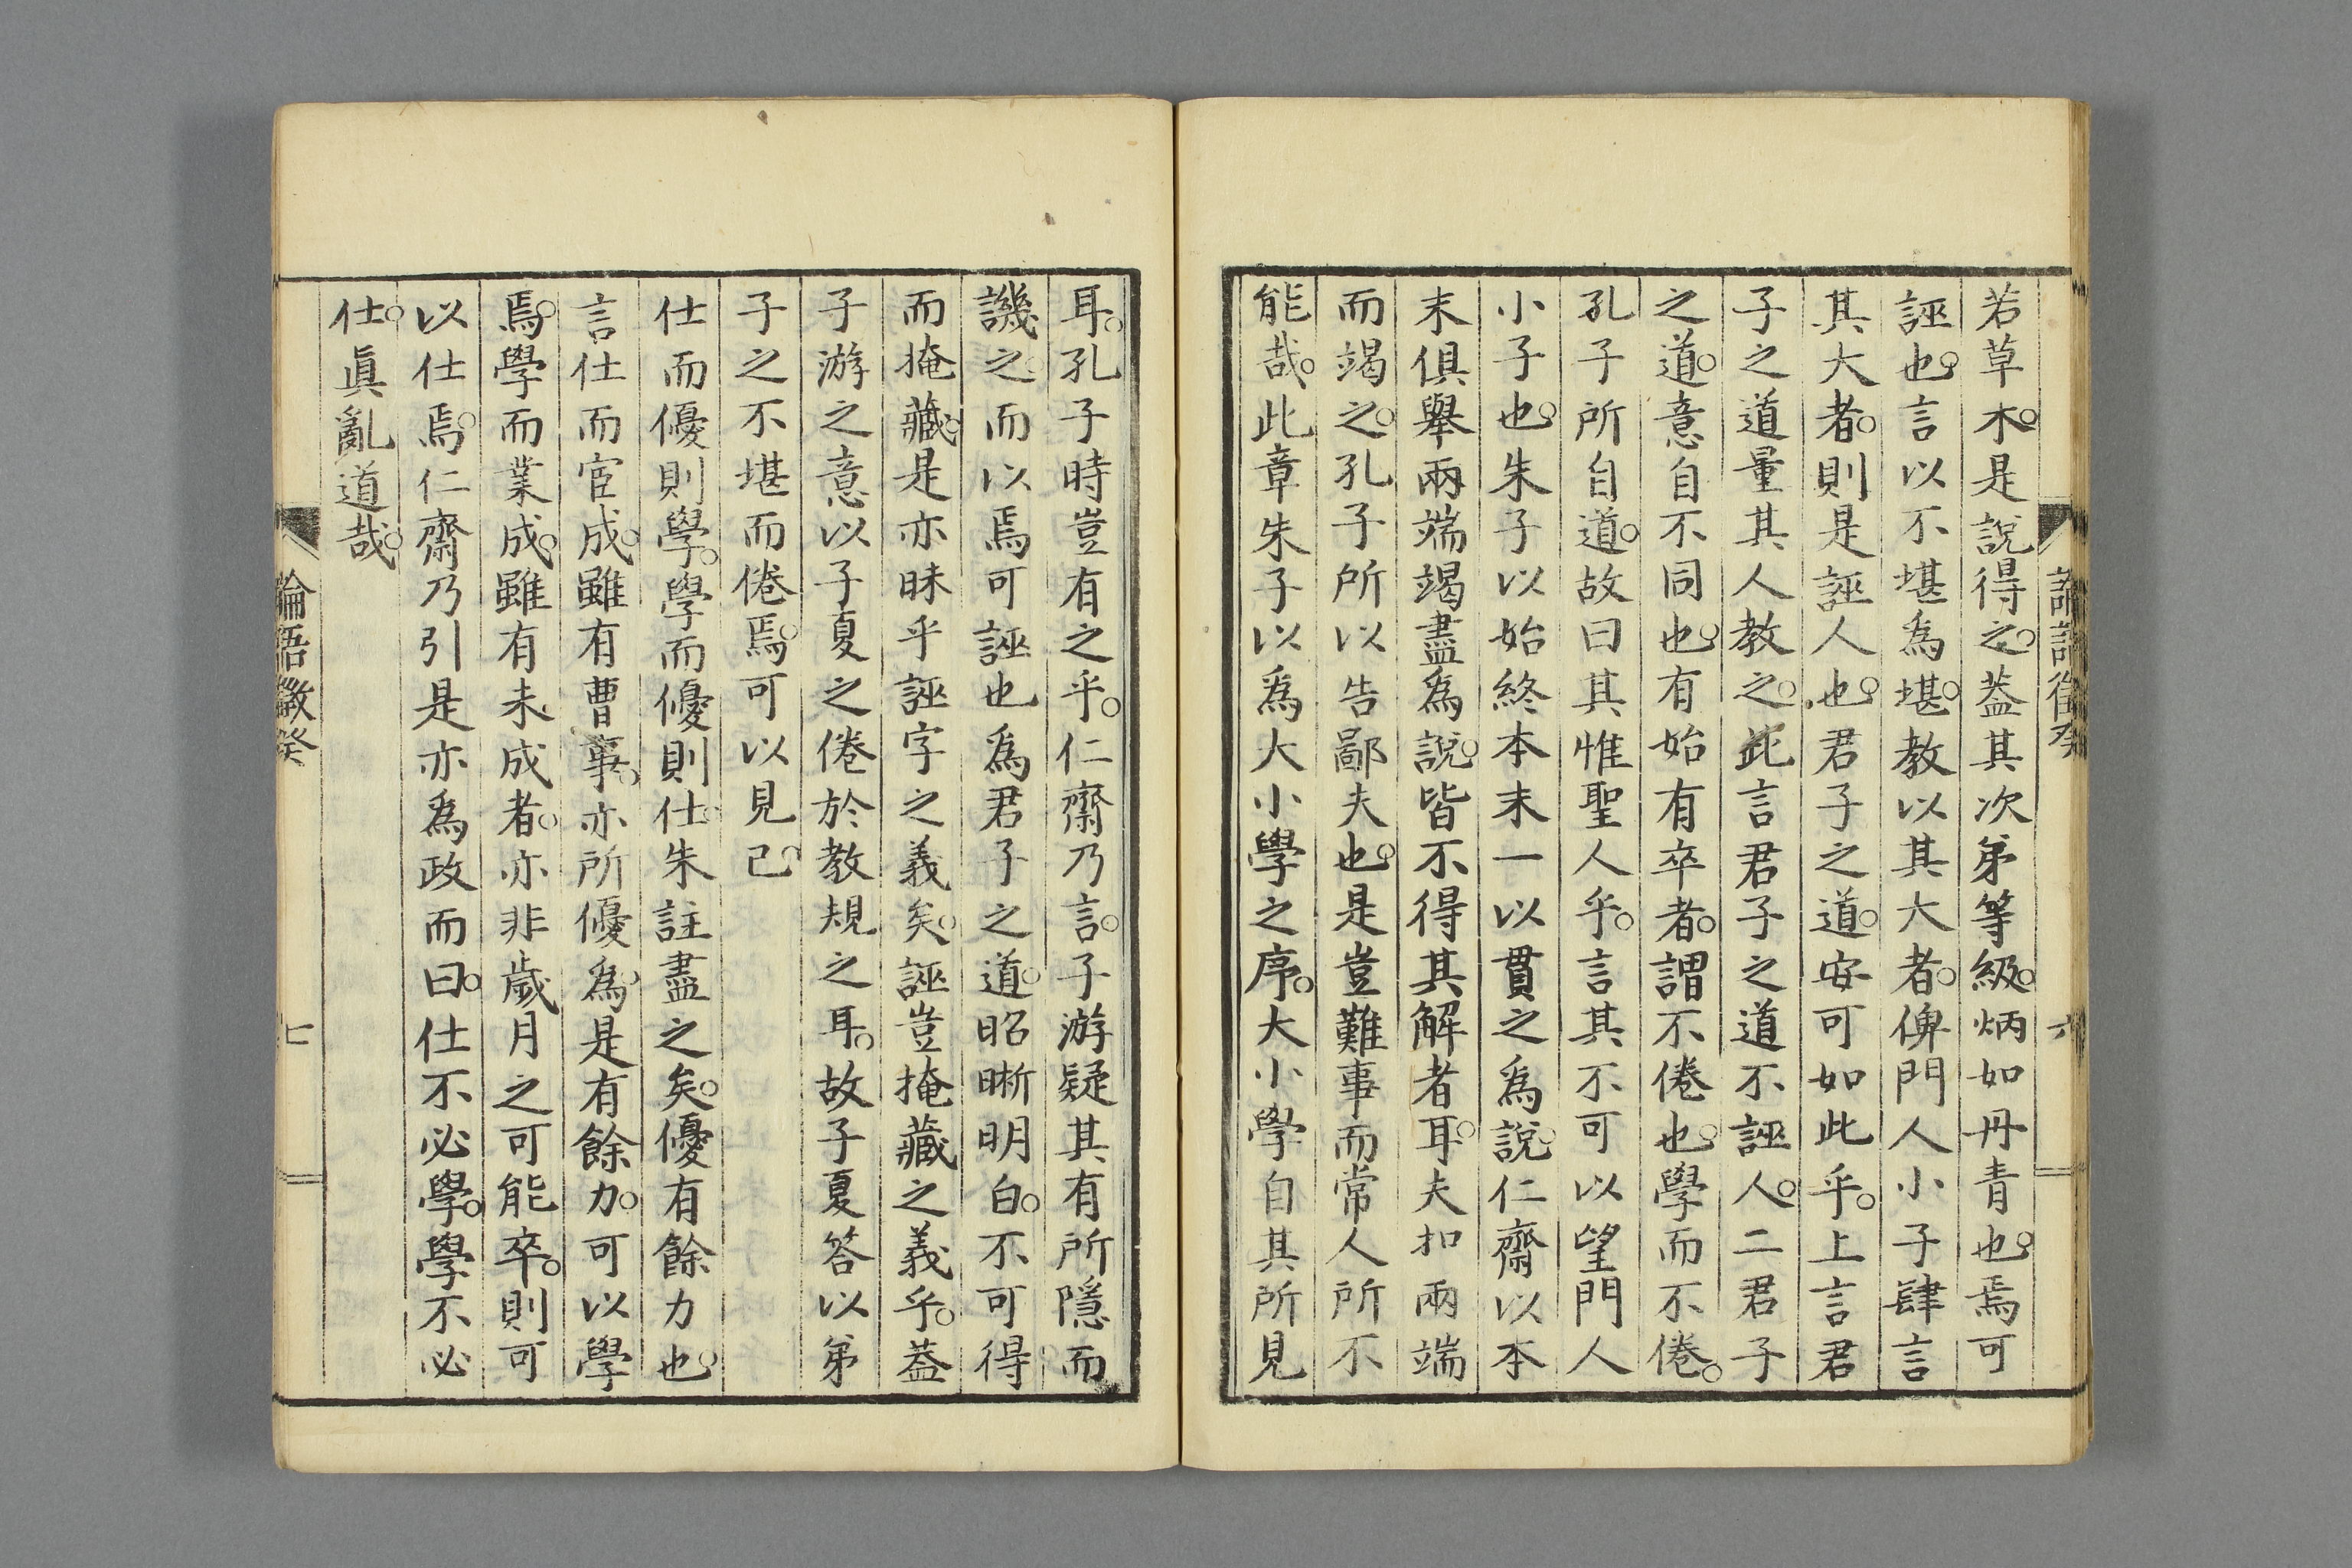 若草木是說得之蓋其次第等級炳如丹青也焉可
誣也言以不堪為堪教以其大者俾門人小子肆言
其大者則是誣人也君子之道安可如此乎上言君
子之道量其人教之此言君子之道不誣人二君子
之道意自不同也有始有卒者謂不倦也學而不倦
孔子所自道故曰其惟聖人乎言其不可以望門人
小子也朱子以始終本末一以貫之為說仁齋以本
末俱舉兩端竭盡為說皆不得其解者耳夫扣兩端
而竭之孔子所以告鄙夫也是豈難事而常人所不
能哉此章朱子以為大小學之序大小學自其所見
耳孔子時豈有之乎仁齋乃言子游疑其有所隱而
譏之而以焉可誣也為君子之道昭晰明白不可得
而掩藏是亦昧乎誣字之義矣誣豈掩藏之義乎蓋
子游之意以子夏之倦於教規之耳故子夏答以弟
子之不堪而倦焉可以見已
仕而優則學學而優則仕朱註盡之矣優有餘力也
言仕而宦成雖有曹事亦所優為是有餘力可以學
焉學而業成雖有未成者亦非歲月之可能卒則可
以仕焉仁齋乃引是亦為政而曰仕不必學學不必
仕眞亂道哉
論語徵癸
七